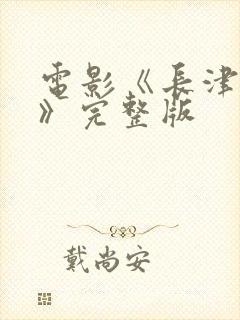 電影《長津
》完整版
戴尚安